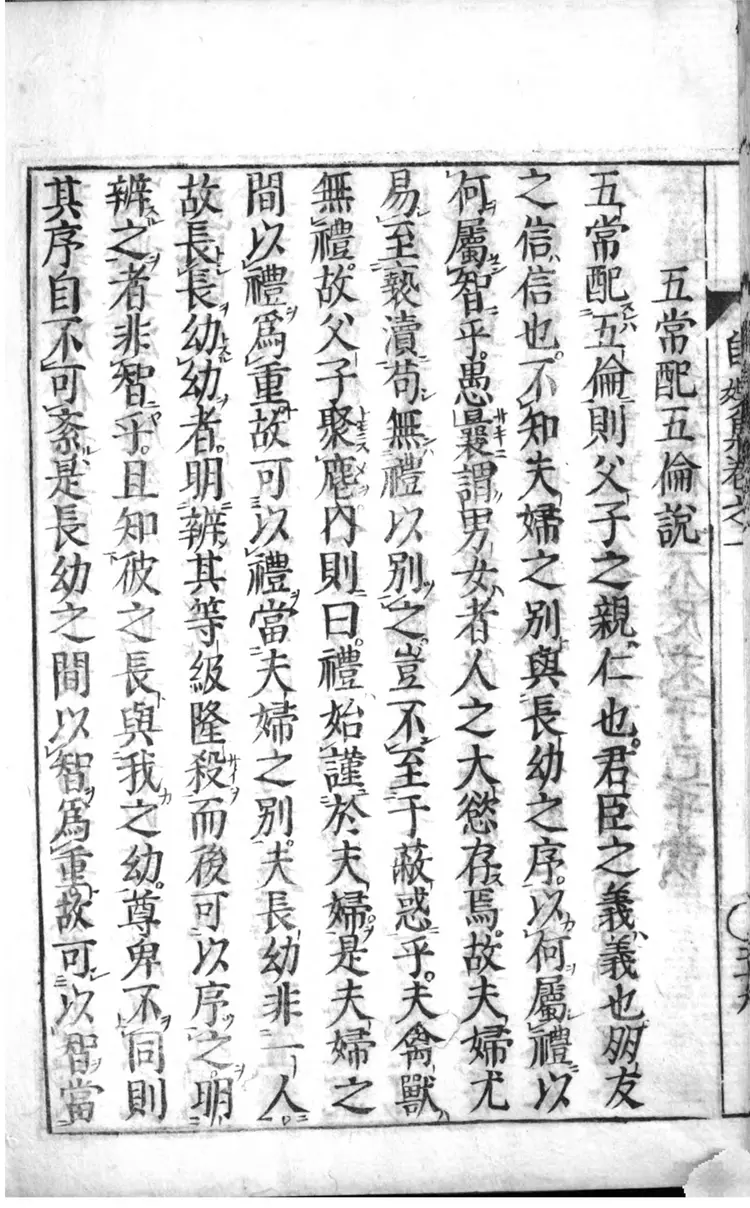 五常配五倫說
五常配五倫則父子之親仁也君臣之義義也朋友
之信信也不知夫婦之別與長幼之序以何屬禮以
何屬智乎愚曩謂男女者人之大慾存焉故夫婦尤
易至褻瀆苟無禮以別之豈不至于蔽惑乎夫禽獸
無禮故父子聚麀內則曰禮始謹於夫婦是夫婦之
間以禮爲重故可以禮當夫婦之別夫長幼非一人
故長長幼幼者明辨其等級隆殺而後可以序之明
辨之者非智乎且知彼之長與我之幼尊卑不同則
其序自不可紊是長幼之間以智爲重故可以智當